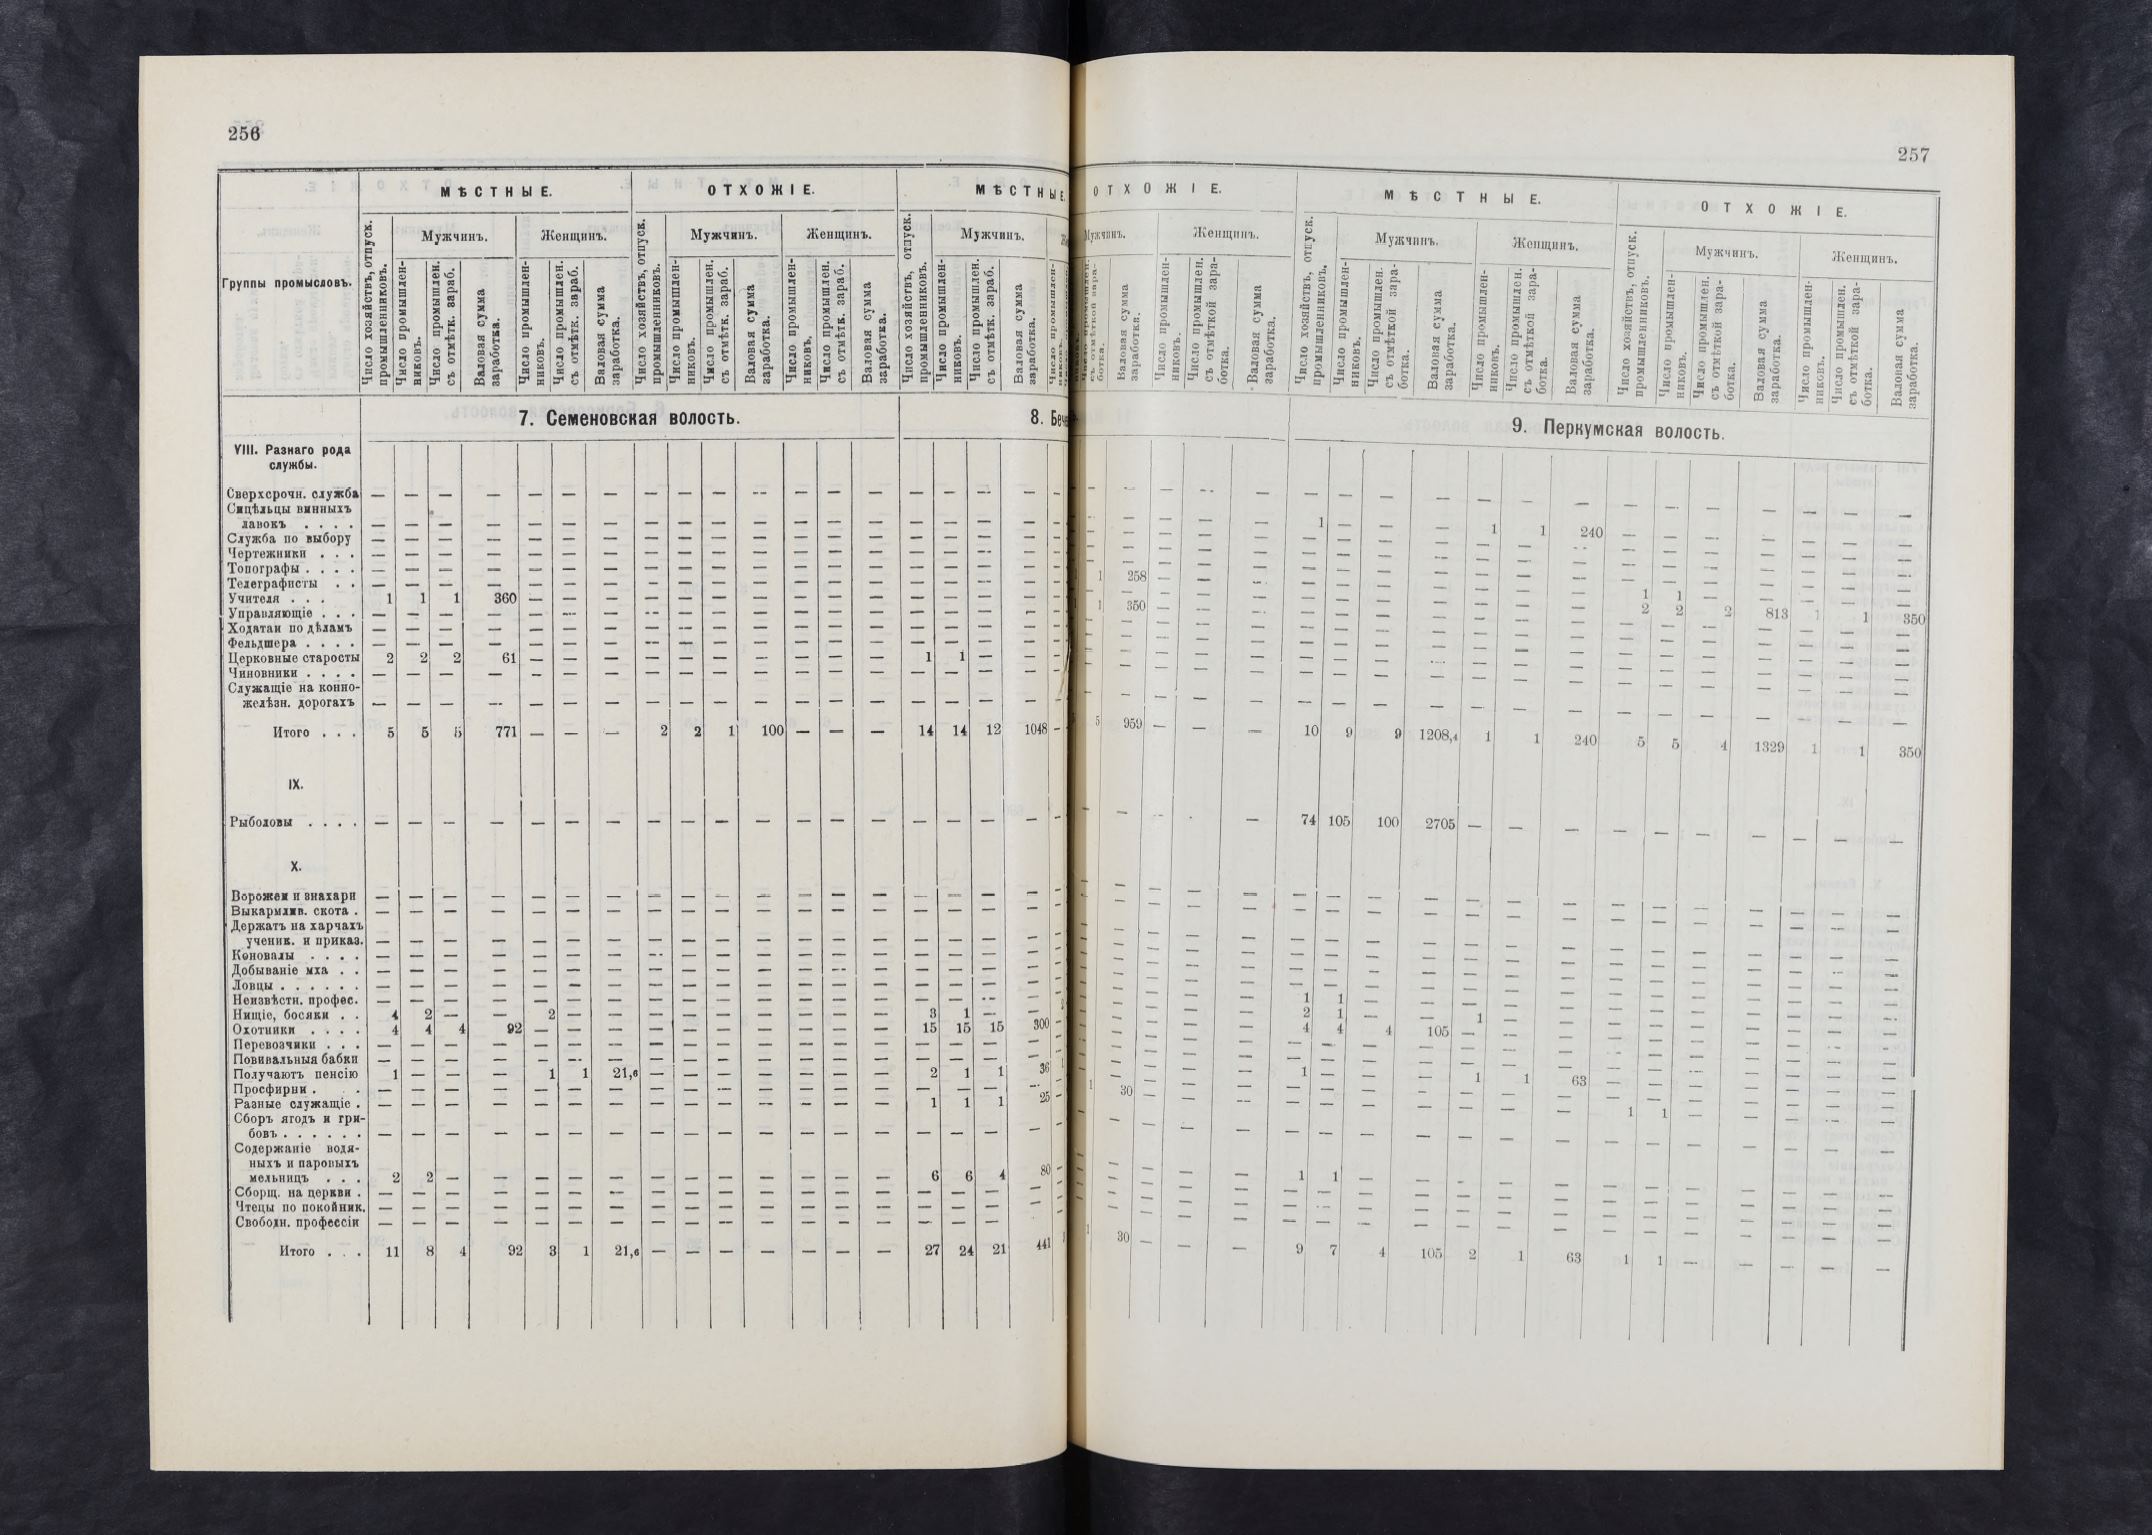 256
257
МѢСТНЫЕ. ОТХОЖІЕ. МѢСТНЫЕ. ОТХОЖІЕ. МѢСТНЫЕ. ОТХОЖІЕ.
Группы промысловъ.
Число хозяйствъ, отпуск. промышленниковъ.
Мужчинъ. Женщинъ.
Число промышлен-
никовъ.
Число промышлен.
съ отмѣтк. зараб.
Валовая сумма
заработка.
Число промышлен-
никовъ.
Число промышлен.
съ отмѣтк. зараб.
Валовая сумма
заработка.
Число хозяйствъ, отпуск.
промышленниковъ.
Мужчинъ. Женщинъ.
Число промышлен-
никовъ.
Число промышлен.
съ отмѣтк. зараб.
Валовая сумма
заработка.
Число промышлен-
никовъ.
Число промышлен.
съ отмѣтк. зараб.
Валовая сумма
заработка.
Число хозяйствъ, отпуск.
промышленниковъ.
Мужчинъ.
Число промышлен-
никовъ.
Число промышлен.
съ отмѣтк. зараб.
Валовая сумма
заработка.
Мужчинъ. Женщинъ.
Валовая сумма
заработка.
Число промышлен-
никовъ.
Число промышлен.
съ отмѣткой зара-
ботка.
Валовая сумма
заработка.
Число хозяйствъ, отпуск.
промышленниковъ.
Мужчинъ. Женщинъ.
Число промышлен-
никовъ.
Число промышлен.
съ отмѣткой зара-
ботка.
Валовая сумма
заработка.
Число промышлен-
никовъ.
Число промышлен.
съ отмѣткой зара-
ботка.
Валовая сумма
заработка.
Число хозяйствъ, отпуск.
промышленниковъ.
Мужчинъ. Женщинъ.
Число промышлен-
никовъ.
Число промышлен.
съ отмѣткой зара-
ботка.
Валовая сумма
заработка.
Число промышлен-
никовъ.
Число промышлен.
съ отмѣткой зара-
ботка.
Валовая сумма
заработка.
7. Семеновская волость. 8. Бече 9. Перкумская волость.
VIII. Разнаго рода
службы.
Сверхсрочн. служба — — — — — — — — — — — — — — — — — —
Сицѣльцы винныхъ
лавокъ . . . . — — — — — — — — — — — — — — — — — — 1 — — — 1 1 240 — — — — — — —
Служба по выбору — — — — — — — — — — — — — — — — — —
Чертежники . . . — — — — — — — — — — — — — — — — — —
Топографы . . . . — — — — — — — — — — — — — — — — — —
Телеграфисты . . — — — — — — — — — — — — — — — — — — 1 258 — — —
Учителя . . . 1 1 1 360 — — — — — — — — — — — — — — 1 1 — — — — —
Управляющіе . . . — — — — — — — — — — — — — — — — — — 1 350 — — — — — — — — — — 2 2 2 813 1 1 350
Ходатаи по дѣламъ — — — — — — — — — — — — — — — — — —
Фельдшера . . . . — — — — — — — — — — — — — — — — — —
Церковные старосты 2 2 2 61 — — — — — — — — — — 1 1 — —
Чиновники . . . . — — — — — — — — — — — — — — — — — —
Служащіе на конно-
желѣзн. дорогахъ — — — — — — — — — — — — — — — — — —
Итого . . . 5 5 5 771 — — — 2 2 1 100 — — — 14 14 12 1048 — 5 959 — — — 10 9 9 1208,4 1 1 240 5 5 4 1329 1 1 350
IX.
Рыболовы . . . . — — — — — — — — — — — — — — — — — — 74 105 100 2705 — — — — — — — — — —
X.
Ворожеи и знахари — — — — — — — — — — — — — — — — — —
Выкармлив. скота . — — — — — — — — — — — — — — — — — —
Держатъ на харчахъ
ученик. и приказ. — — — — — — — — — — — — — — — — — —
Коновалы . . . . — — — — — — — — — — — — — — — — — —
Добываніе мха . . — — — — — — — — — — — — — — — — — —
Ловцы . . . . . . — — — — — — — — — — — — — — — — — —
Неизвѣстн. профес. — — — — — — — — — — — — — — — — — — 1 1 — — — — —
Нищіе, босяки . . 4 2 — — 2 — — — — — — — — — 3 1 — — 2 1 — — 1 — —
Охотники . . . . 4 4 4 92 — — — — — — — — — — 15 15 15 300 — 4 4 4 105 — — —
Перевозчики . . . — — — — — — — — — — — — — — — — — —
Повивальныя бабки — — — — — — — — — — — — — — — — — —
Получаютъ пенсію 1 — — — 1 1 21,6 — — — — — — — 2 1 1 36 1 30 — — — 1 — — — 1 1 63 — — — — — — —
Просфирни . . — — — — — — — — — — — — — — — — — —
Разные служащіе . — — — — — — — — — — — — — — 1 1 1 25 — — — — — — — — — — — 1 1 — — — — —
Сборъ ягодъ и гри-
бовъ . . . . . . — — — — — — — — — — — — — — — — — —
Содержаніе водя-
ныхъ и паровыхъ
мельницъ . . . 2 2 — — — — — — — — — — — — 6 6 4 80 — — — — — 1 1 — — — — — — — — — — — —
Сборщ. на церкви . — — — — — — — — — — — — — — — — — —
Чтецы по покойник. — — — — — — — — — — — — — — — — — —
Свободн. профессіи — — — — — — — — — — — — — — — — — —
Итого . . . 11 8 4 92 3 1 21,6 — — — — — — — 27 24 21 441 1 30 — — — 9 7 4 105 2 1 63 1 1 — — — — —